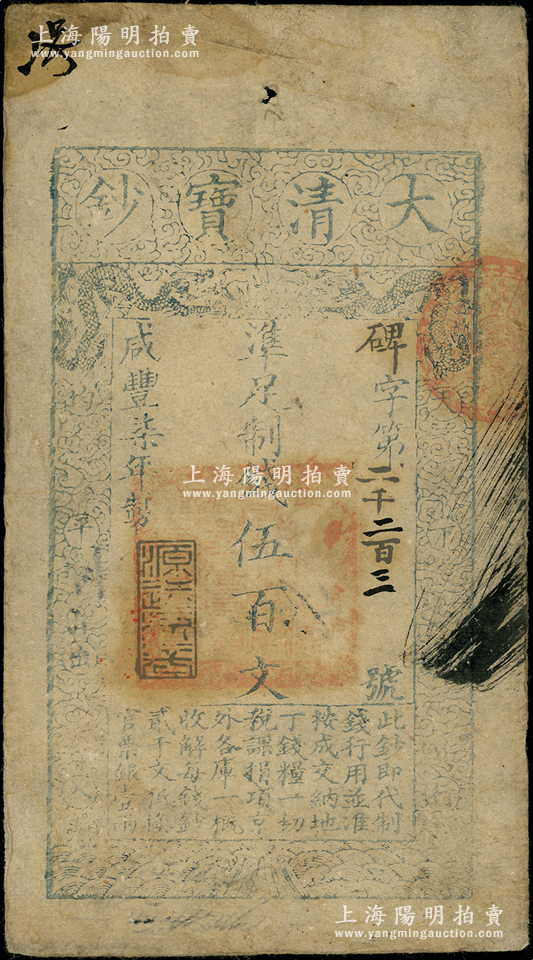 上海陽明拍賣
www.yangmingauction.com
大清寶鈔
碑字第二千二百三號
準足制錢伍百文
咸豐柒年製
上海陽明拍賣
www.yangmingauction.com
此鈔即代制
錢行用並準
按成交納地
丁錢糧一切
稅課捐項京
外各庫一概
收解每錢鈔
貳千文抵換
官票銀壹兩
上海陽明拍賣
www.yangmingauction.com